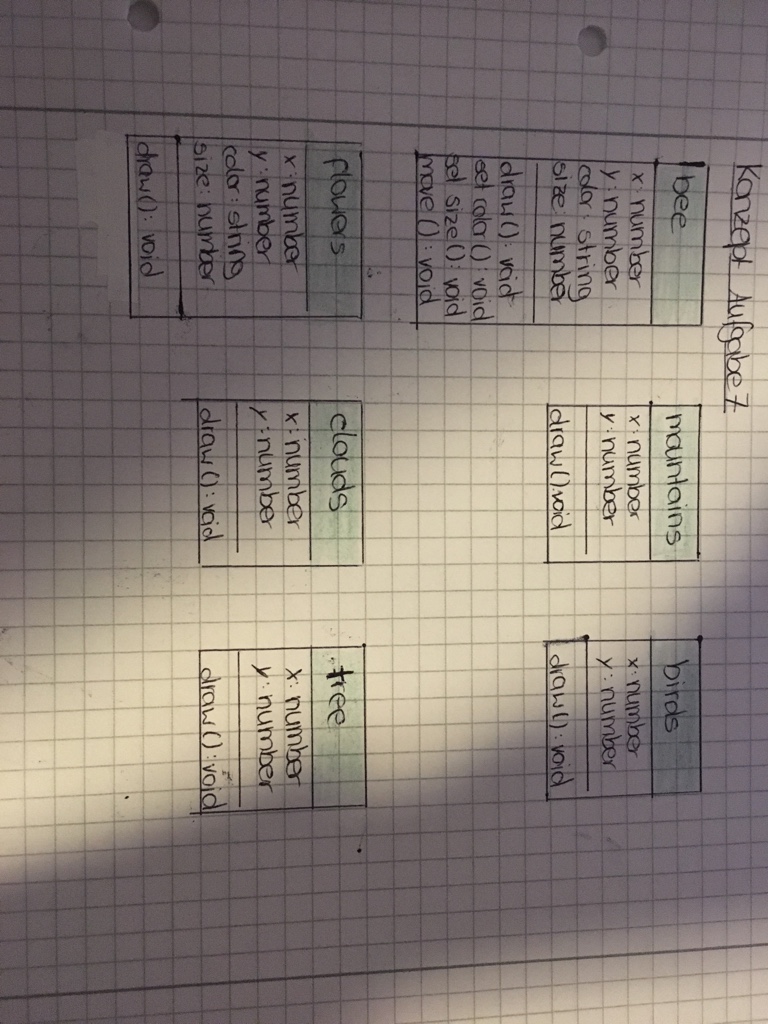 Konzept Aufgabe 7
bee
x: number
y: number
color: string
size: number
draw(): void
set color(): void
set size(): void
move(): void
mountains
x: number
y: number
draw(): void
birds
x: number
y: number
draw(): void
flowers
x: number
y: number
color: string
size: number
draw(): void
clouds
x: number
y: number
draw(): void
tree
x: number
y: number
draw(): void